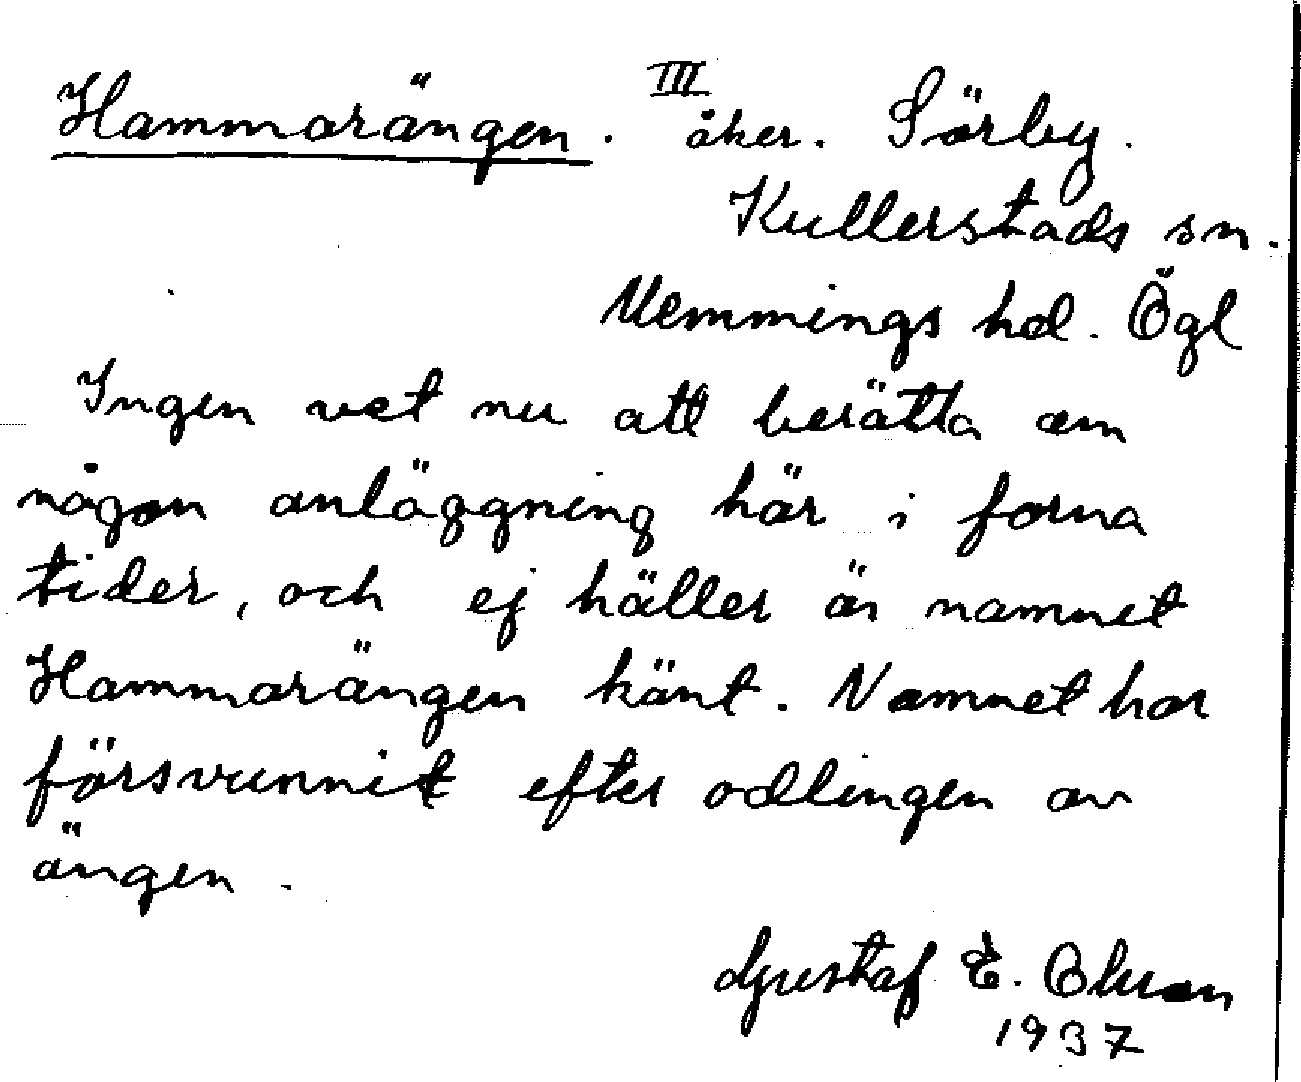 Hammarängen. III åker. Sörby.
Kullerstads sn.
Memmings hd. Ögl
Ingen vet nu att berätta om
någon anläggning här i forna
tider, och ej häller är namnet
Hammarängen känt. Namnet har
försvunnit efter odlingen av
ängen.
Gustaf E.
1937